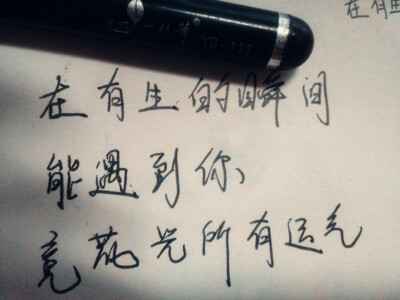 YB-111
在有
在有生的瞬间
能遇到你、
竟花光所有运气